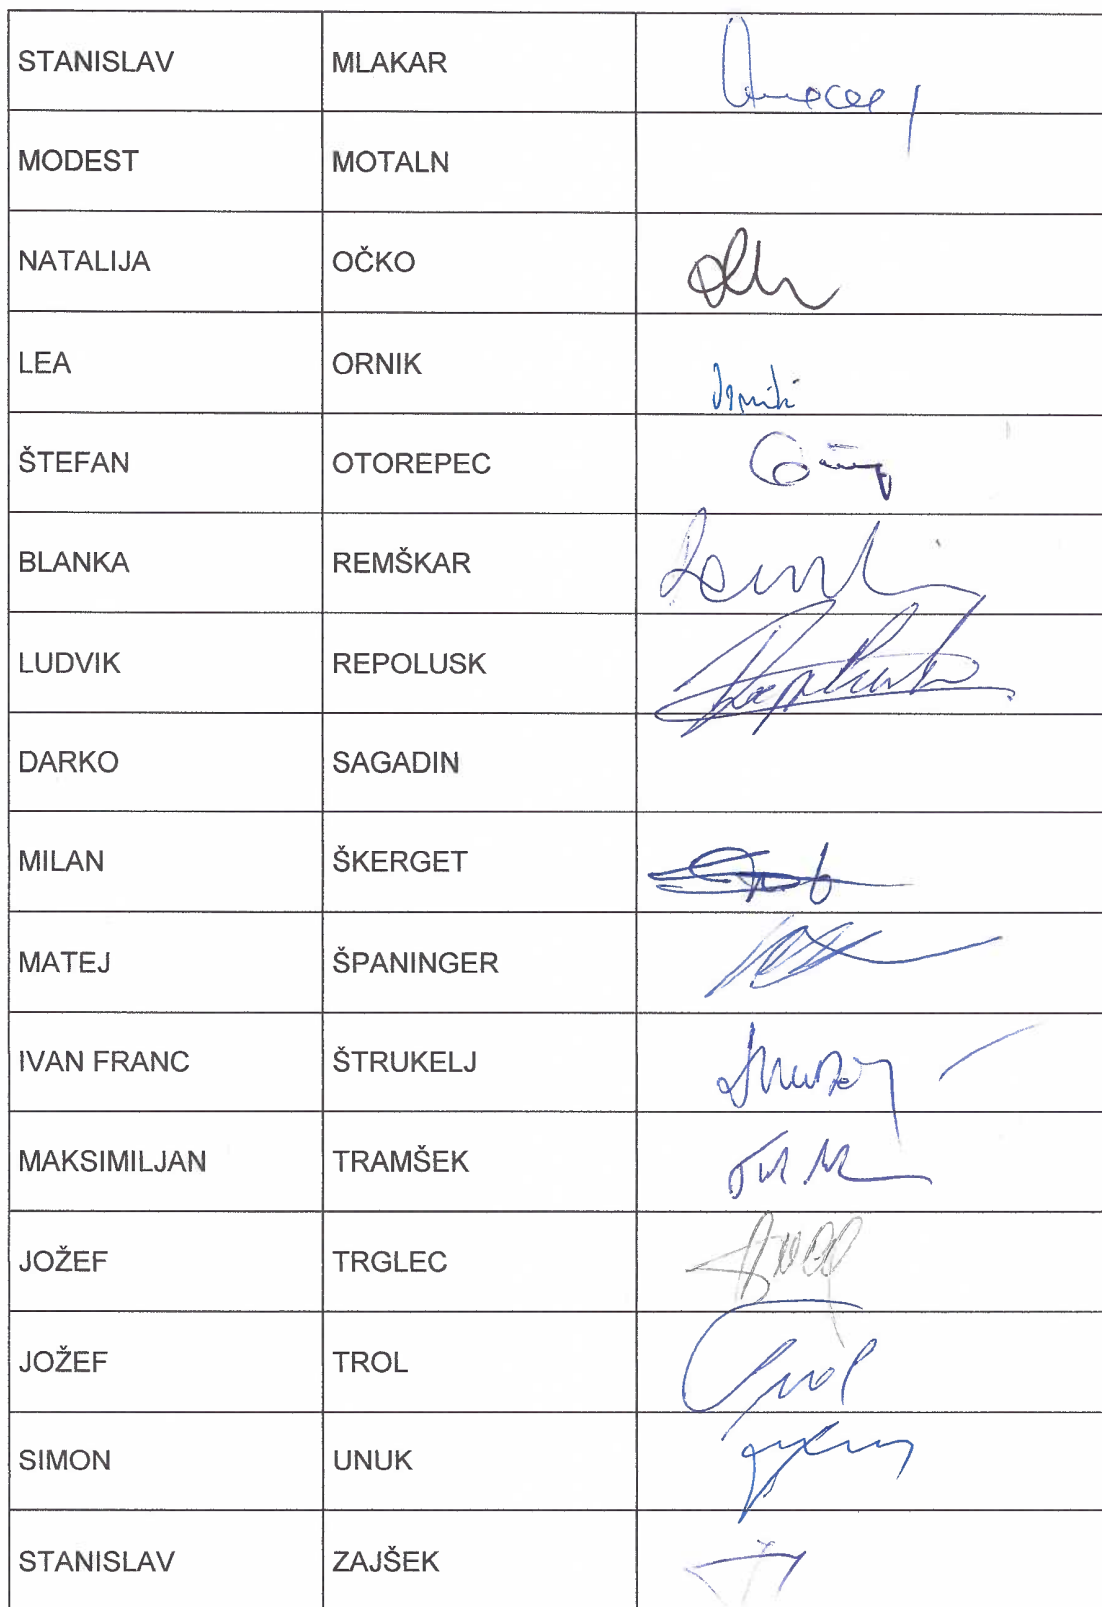 STANISLAV MLAKAR
MODEST MOTALN
NATALIJA OČKO
LEA ORNIK
ŠTEFAN OTOREPEC
BLANKA REMŠKAR
LUDVIK REPOLUSK
DARKO SAGADIN
MILAN ŠKERGET
MATEJ ŠPANINGER
IVAN FRANC ŠTRUKELJ
MAKSIMILJAN TRAMŠEK
JOŽEF TRGLEC
JOŽEF TROL
SIMON UNUK
STANISLAV ZAJŠEK